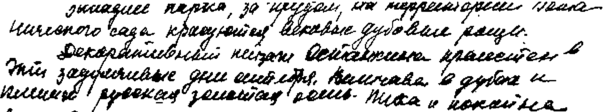 западнее парка, за прудом, на территории Бота
нического сада красуются вековые дубовые рощи.
Декоративный пейзаж Останкина прелестен в
эти задумчивые дни октября. Величава в дубах и
русская золотая осень. Тиха и покойна